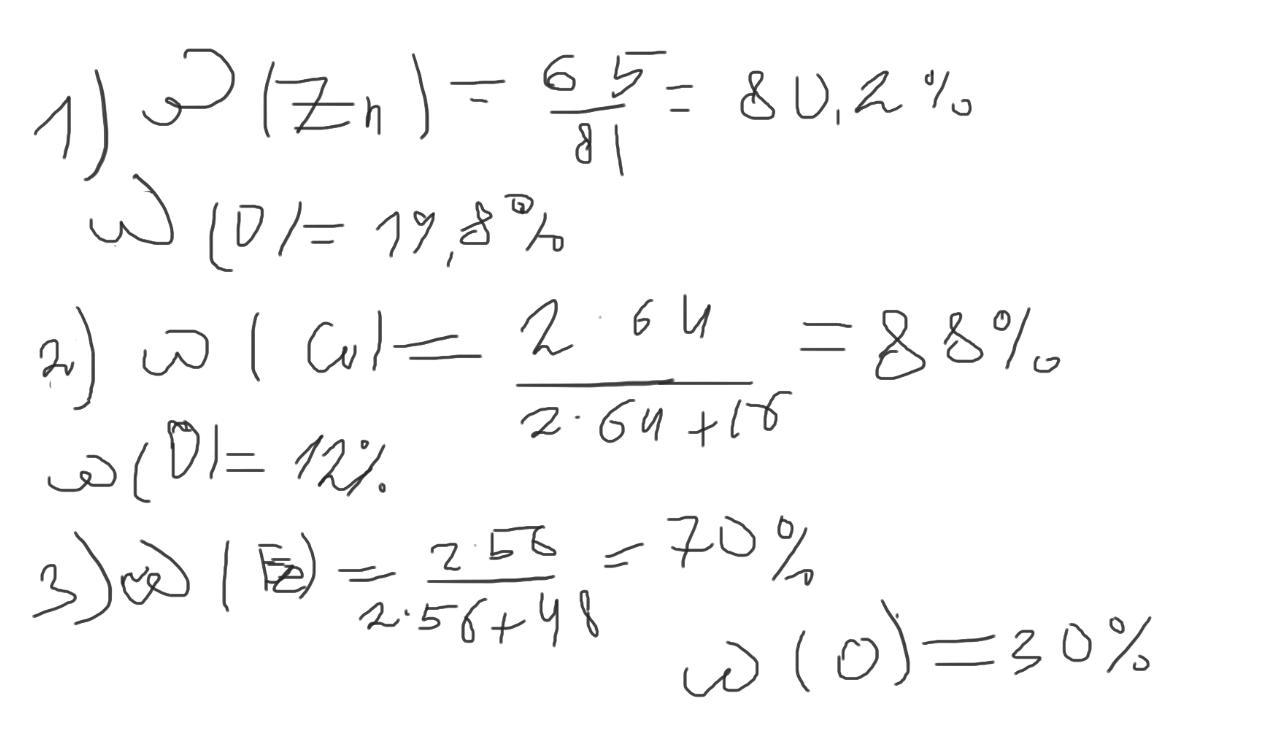 1) ω(Zn) = 65/81 = 80,2%
ω(O) = 19,8%
2) ω(Cu) = 2·64/(2·64+16) = 88%
ω(O) = 12%
3) ω(Fe) = 2·56/(2·56+48) = 70%
ω(O) = 30%